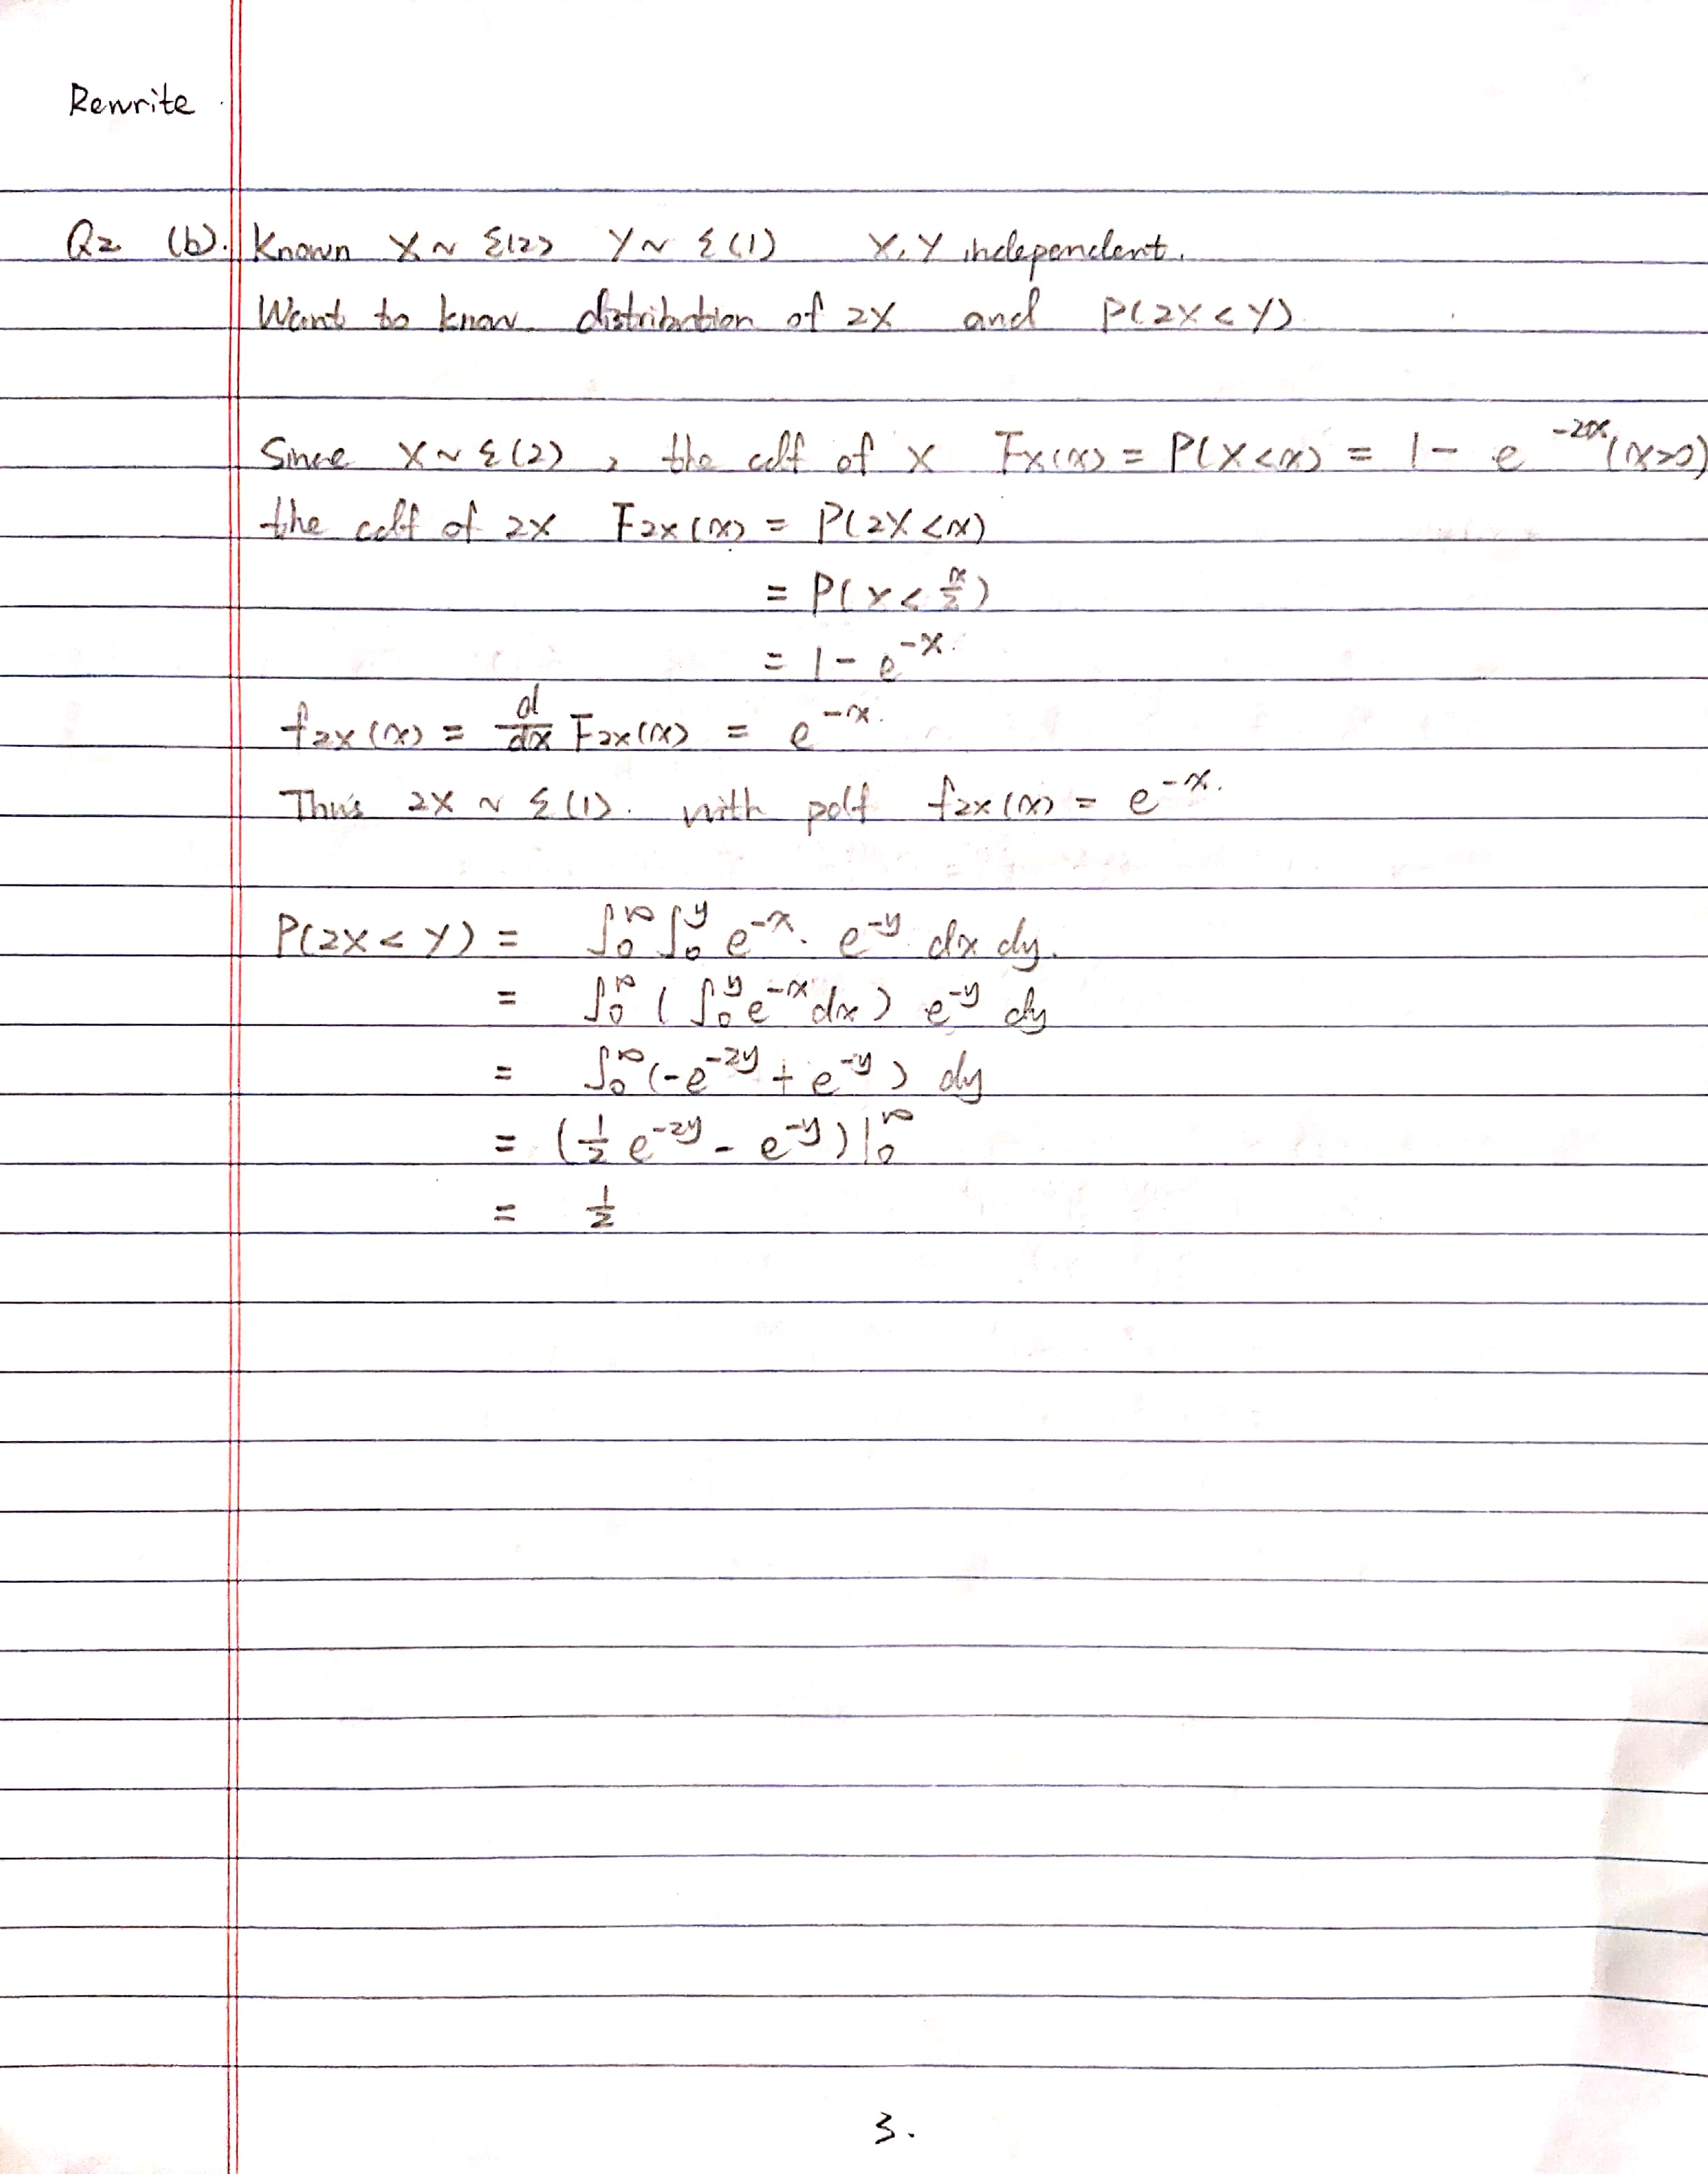 Rewrite
Q2 (b). Known X ~ ℰ(2) Y ~ ℰ(1) X, Y independent.
Want to know distribution of 2X and P(2X < Y)
Since X ~ ℰ(2), the cdf of X F_X(x) = P(X < x) = 1 - e^{-2x} (x>0)
the cdf of 2X F_{2X}(x) = P(2X < x)
= P(X < x/2)
= 1 - e^{-x}.
f_{2X}(x) = d/dx F_{2X}(x) = e^{-x}.
Thus 2X ~ ℰ(1). with pdf f_{2X}(x) = e^{-x}.
P(2X < Y) = ∫_0^∞ ∫_0^y e^{-x} · e^{-y} dx dy.
= ∫_0^∞ ( ∫_0^y e^{-x} dx ) e^{-y} dy
= ∫_0^∞ (-e^{-2y} + e^{-y}) dy
= (1/2 e^{-2y} - e^{-y}) |_0^∞
= 1/2
3.